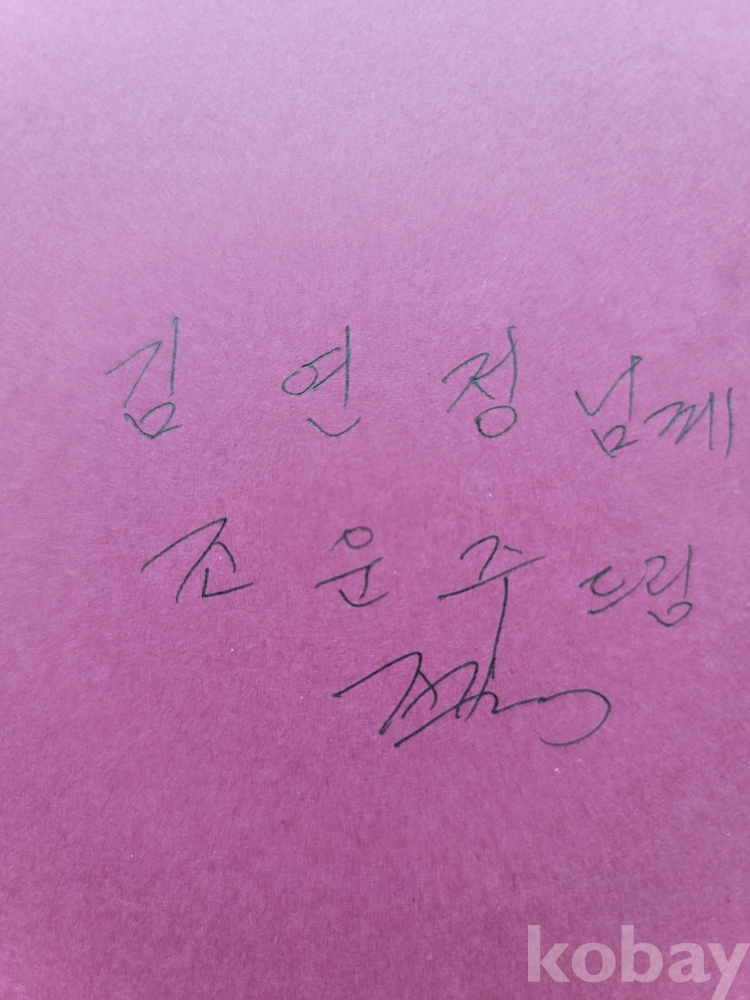 김연정님께
조운주드림
kobay